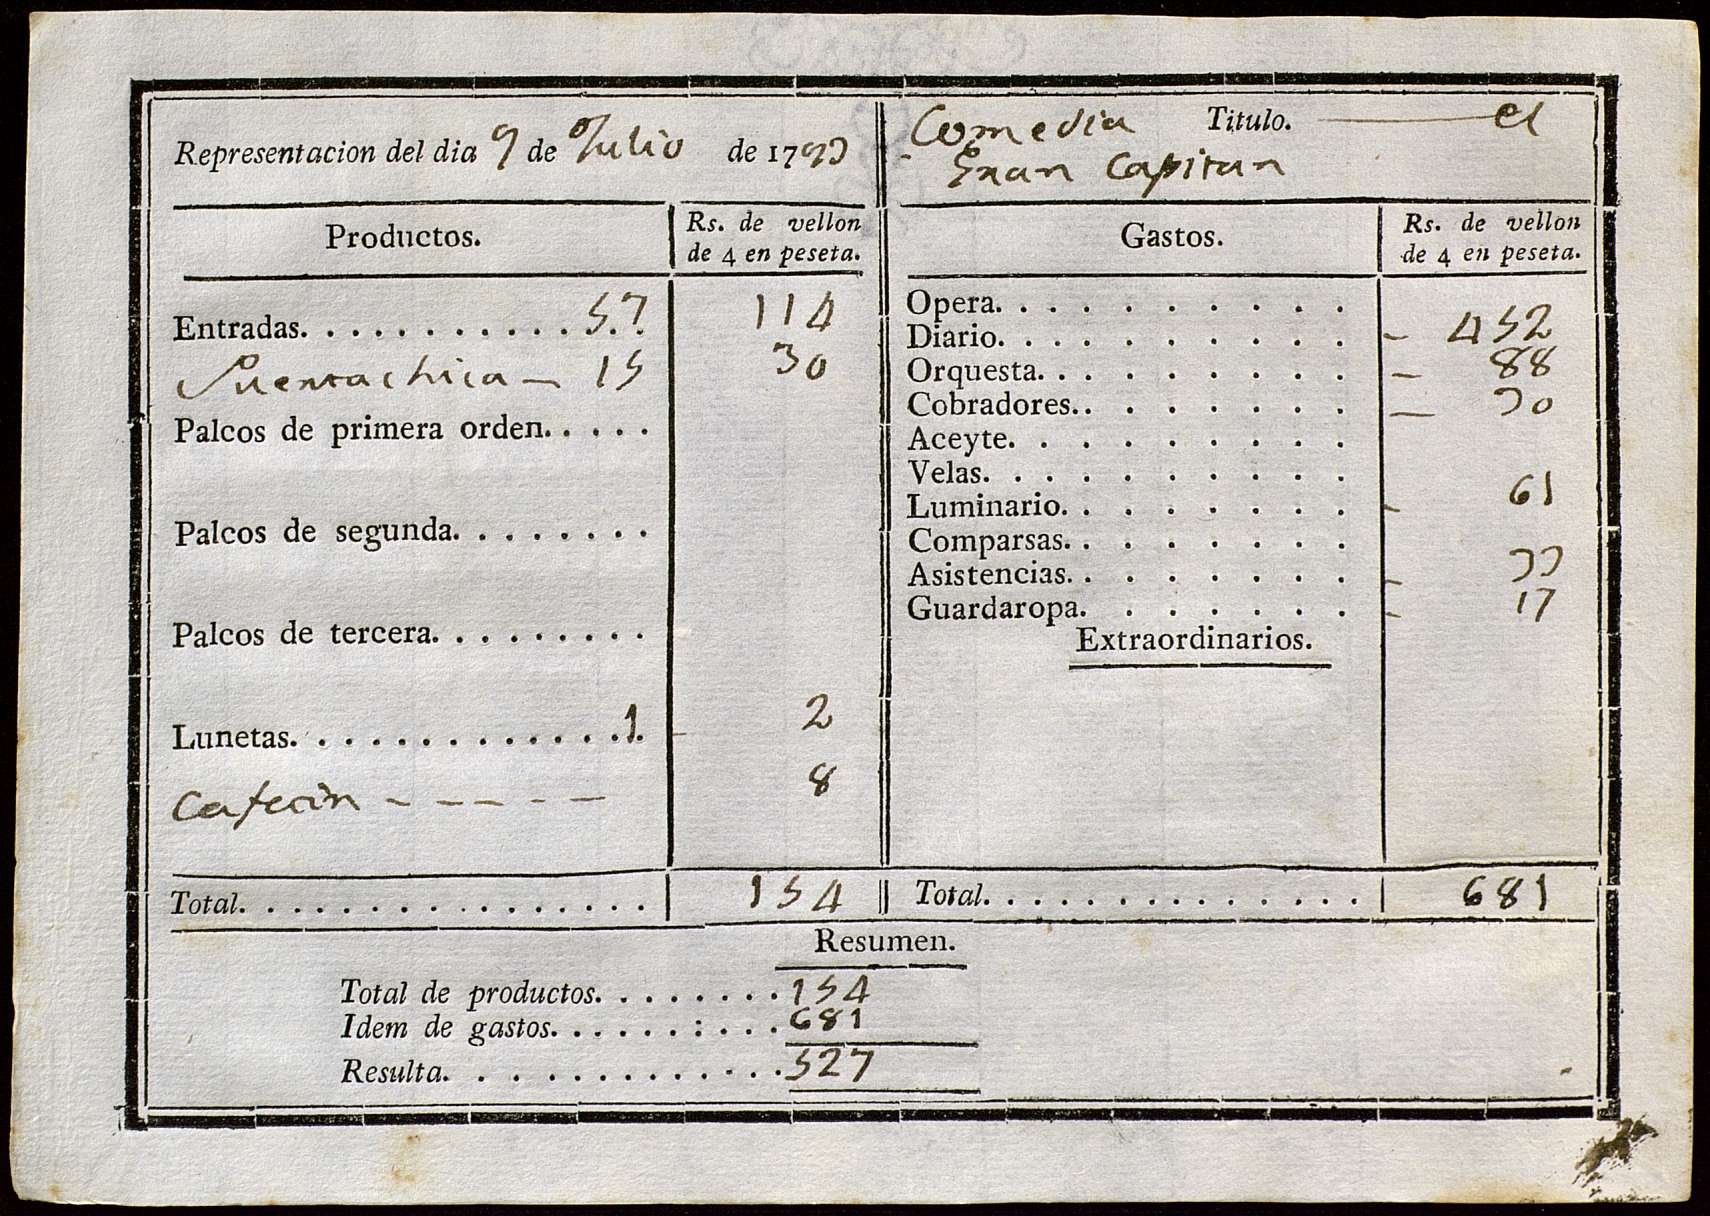 Representacion del dia 9 de Julio de 1793
Comedia Titulo. — el
Gran Capitan
Productos. Rs. de vellon de 4 en peseta.
Entradas. 57 114
Puerta chica — 15 30
Palcos de primera orden.
Palcos de segunda.
Palcos de tercera.
Lunetas. 1 2
Cafecin - - - - - 8
Total. 154
Gastos. Rs. de vellon de 4 en peseta.
Opera.
Diario. - 452
Orquesta. - 88
Cobradores. - 30
Aceyte.
Velas.
Luminario. - 61
Comparsas.
Asistencias. - 33
Guardaropa. - 17
Extraordinarios.
Total. 681
Resumen.
Total de productos. 154
Idem de gastos. 681
Resulta. 527